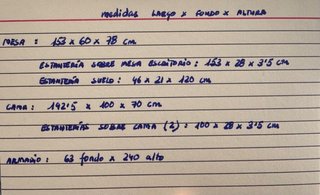 medidas LARGO x FONDO x ALTURA
MESA : 153 x 60 x 78 cm
ESTANTERÍA SOBRE MESA ESCRITORIO : 153 x 28 x 3'5 cm
ESTANTERÍA SUELO : 46 x 21 x 120 cm
CAMA : 142'5 x 100 x 70 cm
ESTANTERÍAS SOBRE CAMA (2) : 100 x 28 x 3'5 cm
ARMARIO : 63 fondo x 240 alto